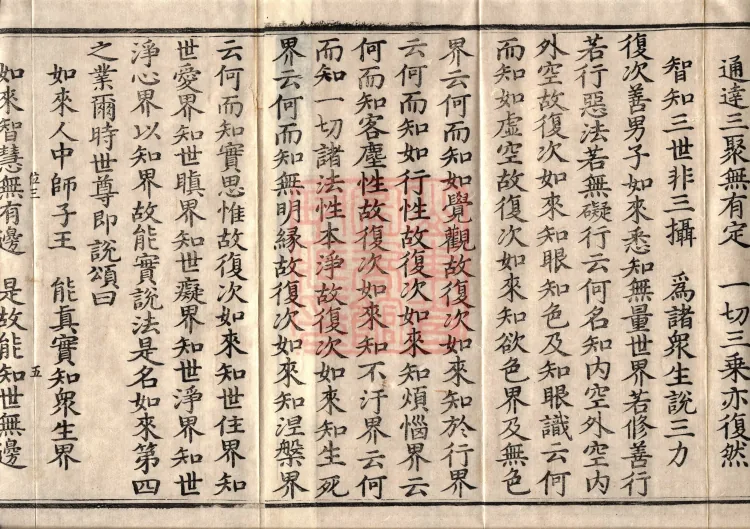 通達三聚無有定　一切三乗亦復然
智知三世非三攝　爲諸衆生說三力
復次善男子如來悉知無量世界若修善行
若行惡法若無礙行云何名知内空外空内
外空故復次如來知眼知色及知眼識云何
而知如虛空故復次如來知欲色界及無色
界云何而知如覺觀故復次如來知於行界
云何而知如行性故復次如來知煩惱界云
何而知客塵性故復次如來知不汙界云何
而知一切諸法性本淨故復次如來知生死
界云何而知無明縁故復次如來知涅槃界
云何而知實思惟故復次如來知世住界知
世愛界知世瞋界知世癡界知世淨界知世
淨心界以知界故能實說法是名如來第四
之業爾時世尊即說頌曰
如來人中師子王　能真實知衆生界
位三　五
如來智慧無有邊　是故能知世無邊